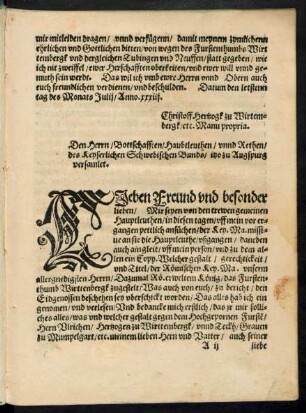 mir mitleiden dragen / vnnd verfügenn / damit meynem zymlichenn
ehrlichen vnd Gottlichen bitten / von wegen des Furstenthumbs Wirt
tenbergk vnd dergleichen Tubingen vnd Neuffen / statt gegeben / wie
ich nit zweiffel / ewer Herschafften oberkeiten / vnd ewer will vnnd ge-
muth sein werde. Das wil ich vmb ewre Herrn vnnd Obern auch
euch freundlichen verdienen / vnd beschulden. Datum den letstenn
tag des Monats Julij / Anno. xxxiij.
Christoff Hertzogk zu Wirten-
bergk / etc. Manu propria.
Den Herrn / Bottschafften / Haubtleuthen / vnnd Rethen /
des Keyserlichen Schwebischen Bunds / itzo zu Augspurg
versamlet.
Lieben Freund vnd besonder
lieben / Mir seyen von den trewen gemeinen
Hauptleuthen / in diesen tagen / vff mein vor er-
gangen petitlich ansůchen / der Key. Ma. missi-
ue an sie die Haupleuthe / vßgangen / dauchen
auch ain gleit / vff mein person / vnd zu dem al
len ein Copy. Welcher gestalt / gerechtickeit /
vnd Titel der Römischen Key. Ma. vnserm
allergnedigsten Herrn / Dazumal Kö. erweltem König / das Fursten-
thumb Wirttenbergk zugestelt / Was auch von euch / zu bericht / den
Eidgenossen beschehen ses vberschickt worden / Das alles hab ich ein
genomen / vnd verlesen / Vnd bedancke mich erstlich / das yr mir sollichs
alles / was vnd welcher gestalt gegen dem Hochgepornen Furst /
Hern Vlrichen / Hertzogen zu Wirttenbergk / vnnd Teckh / Grauen
zu Mumpelgart / etc. meinem lieben Hern vnd Vatter / auch seiner
A ij liebe